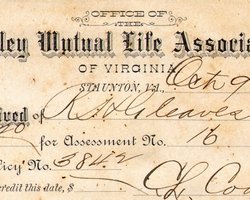 OFFICE OF THE
ley Mutual Life Associ
OF VIRGINIA
STAUNTON, VA., Oct 9
ved of
for Assessment No. 16
icy No. 3842
credit this date, $